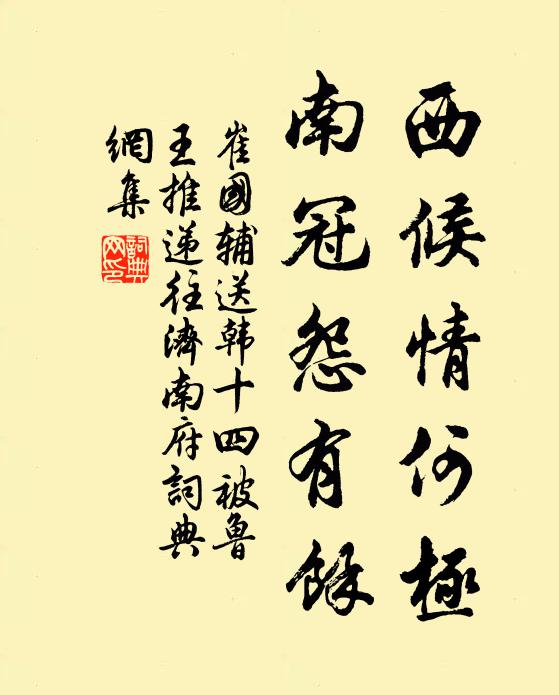 西候情何極
南冠怨有餘
崔國輔送韩十四被魯
王推递往濟南府詞典
網集
詞典
网印